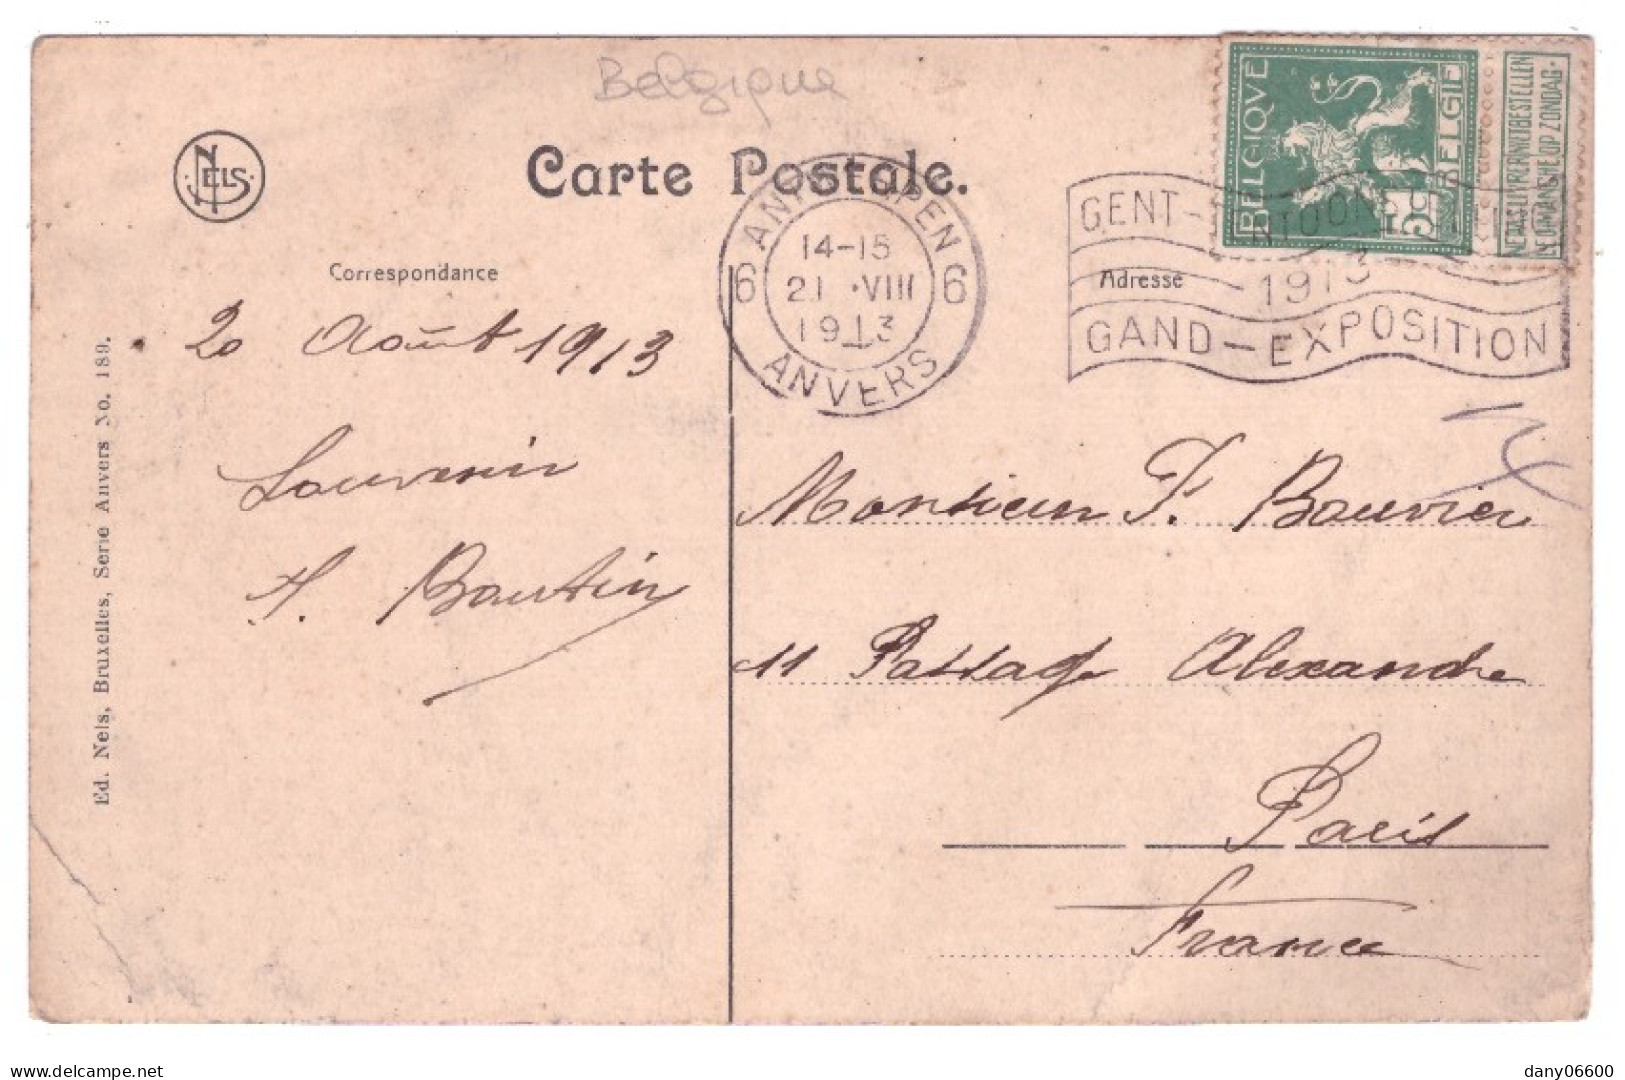 Belgique
NELS
Carte Postale.
ANTWERPEN
6 6
14-15
21 ·VIII
1913
ANVERS
BELGIQUE
BELGIË
5
NE PAS LIVRER LE DIMANCHE
NIET BESTELLEN OP ZONDAG.
GENT-TENTOONSTELLING
1913
GAND-EXPOSITION
Correspondance
Adresse
20 Août 1913
Souvenir
A. Bautin
Monsieur F. Bouvier
11 Passage Alexandre
Paris
France
Ed. Nels, Bruxelles, Serie Anvers No. 189.
www.delcampe.net
dany06600